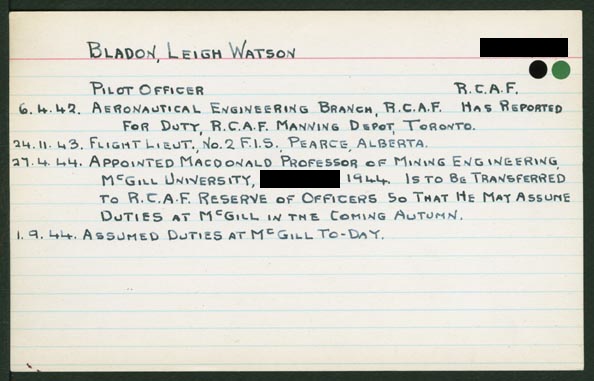 BLADON, LEIGH WATSON
PILOT OFFICER R.C.A.F.
6.4.42. AERONAUTICAL ENGINEERING BRANCH, R.C.A.F. HAS REPORTED
FOR DUTY, R.C.A.F. MANNING DEPOT, TORONTO.
24.11.43. FLIGHT LIEUT., NO.2 F.I.S., PEARCE, ALBERTA.
27.4.44. APPOINTED MACDONALD PROFESSOR OF MINING ENGINEERING,
MCGILL UNIVERSITY, 1944. IS TO BE TRANSFERRED
TO R.C.A.F. RESERVE OF OFFICERS SO THAT HE MAY ASSUME
DUTIES AT MCGILL IN THE COMING AUTUMN.
1.9.44. ASSUMED DUTIES AT MCGILL TO-DAY.